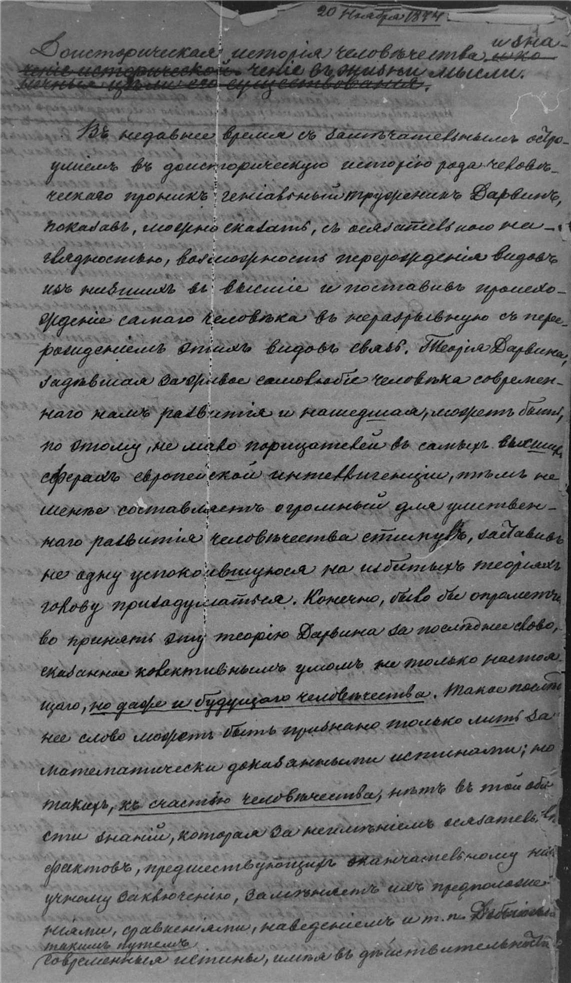 20 Ноября 1884
Доисторическая исторія человѣчества и зна-
ченіе въ жизни мысли.
Въ недавнее время съ замѣчательнымъ остро-
уміемъ въ доисторическую исторію рода человѣ-
ческаго проникъ геніальный труженикъ Дарвинъ,
показавъ, можно сказать, съ осязательною на-
глядностью, возможность перерожденія видовъ
изъ низшихъ въ высшіе и поставивъ происхо-
жденіе самаго человѣка въ неразрывную съ пере-
рожденіемъ этихъ видовъ связь. Теорія Дарвина,
задѣвшая за живое самолюбіе человѣка современ-
наго намъ развитія и нашедшая, можетъ быть,
по этому, не мало порицателей въ самыхъ высшихъ
сферахъ европейской интеллигенціи, тѣмъ не
менѣе составляетъ огромный для умствен-
наго развитія человѣчества стимулъ, заставивъ
не одну успокоившуюся на избитыхъ теоріяхъ
голову призадуматься. Конечно, было бы опрометчи
во принять эту теорію Дарвина за послѣднее слово,
сказанное колективнымъ умомъ не только настоя-
щаго, но даже и будущаго человѣчества. Такое послѣд
нее слово можетъ быть признано только лишь за
математически доказанными истинами; но
такихъ, къ счастью человѣчества, нѣтъ въ той обла
сти знаній, которая за неимѣніемъ осязательныхъ
фактовъ, предшествующихъ окончательному на
учному заключенію, замѣняетъ ихъ предположе
ніями, сравненіями, наведеніемъ и т.п. Добытыя
такимъ путемъ
современныя истины, имѣя въ дѣйствительности